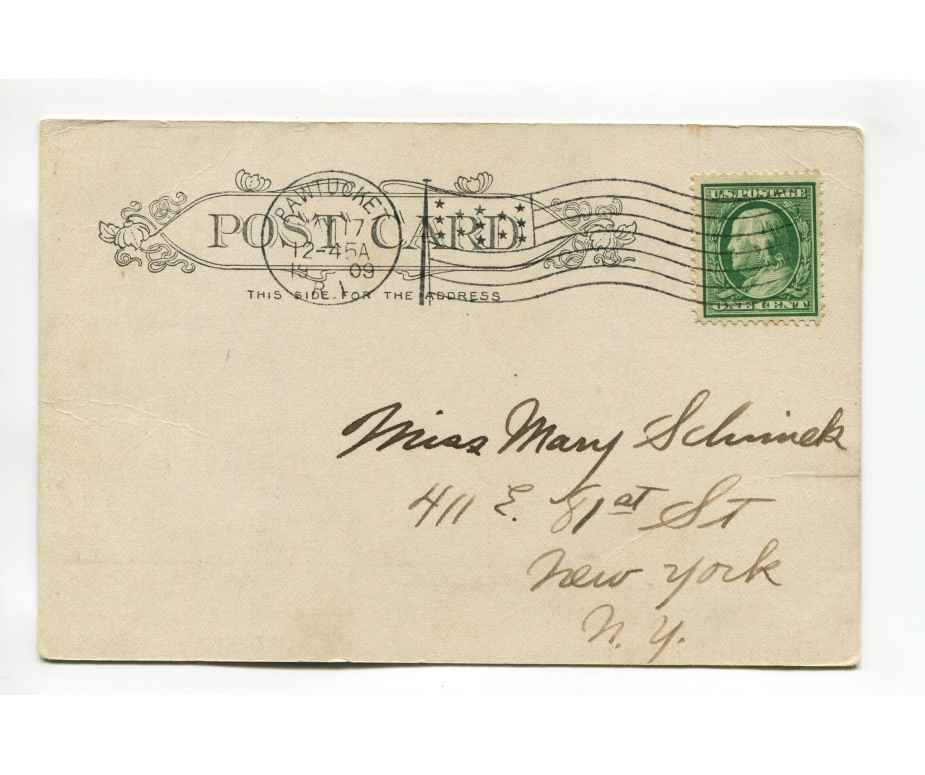 POST CARD
PAWTUCKET
17
12-45A
19 09
R.I.
THIS SIDE FOR THE ADDRESS
U.S. POSTAGE
ONE CENT
Miss Mary Schimek
411 E. 81st St
New York
N.Y.